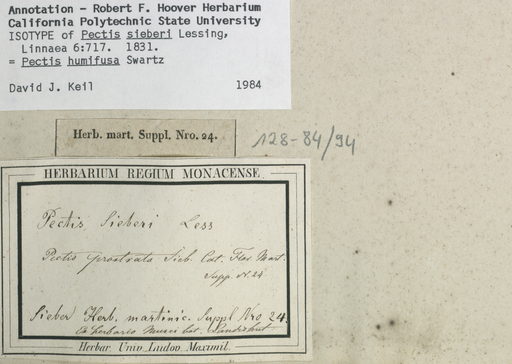 Annotation - Robert F. Hoover Herbarium
California Polytechnic State University
ISOTYPE of Pectis sieberi Lessing,
Linnaea 6:717. 1831.
= Pectis humifusa Swartz
David J. Keil 1984
Herb. mart. Suppl. Nro. 24.
128-84/94
HERBARIUM REGIUM MONACENSE.
Pectis Sieberi Less
Pectis prostrata Sieb. Cat. Flor. Mart.
Supp. N. 24
Sieber Herb. martinic. Suppl Nro 24.
Ex herbario Musei bot. Landishut
Herbar. Univ. Ludov. Maximil.